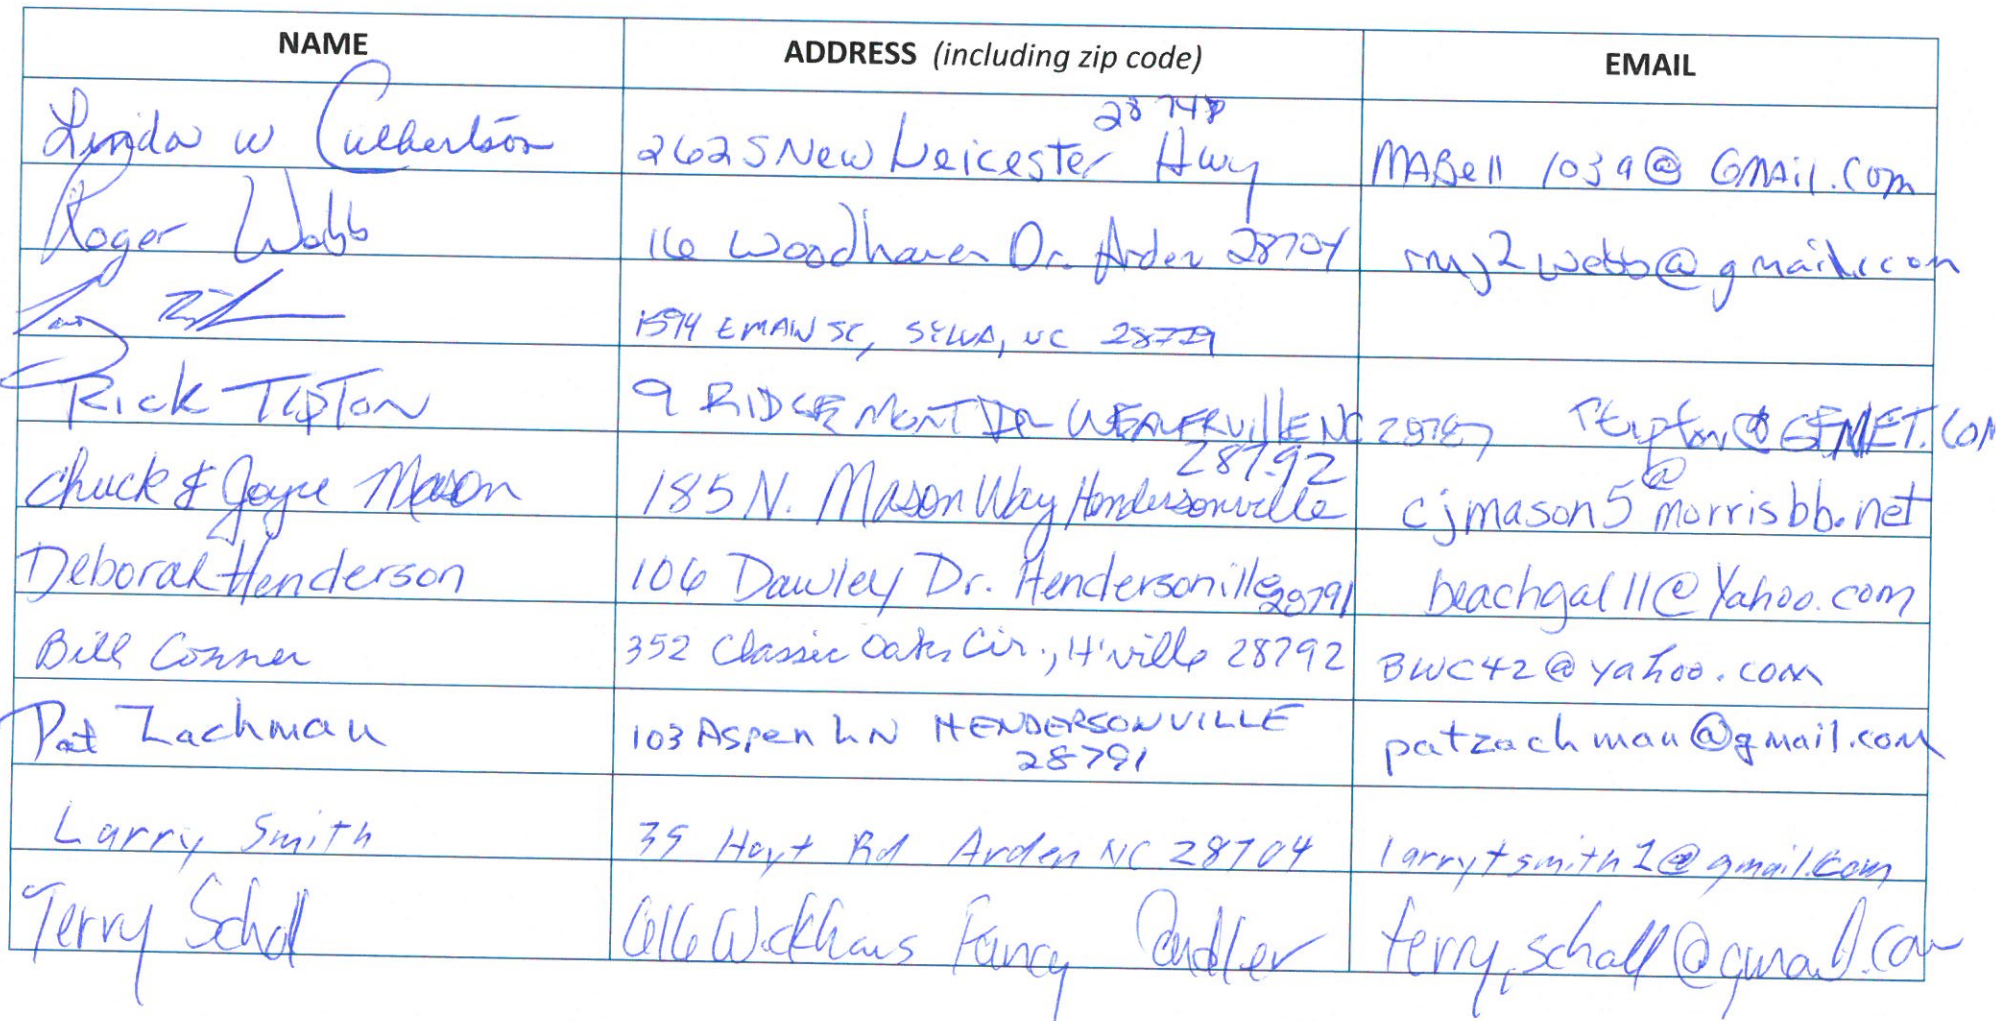 NAME ADDRESS (including zip code) EMAIL
28748
Linda W Culbertson 2625 New Leicester Hwy MABell 1039@ GMAil.com
Roger Webb 16 Woodhaven Dr. Arden 28704 rmj2webb@gmail.com
1594 E MAIN ST, SYLVA, NC 28779
Rick TipTon 9 RIDGEMONT DR WEAVERVillE NC 28787 rtipton@GFNET.COM
28792
Chuck & Joyce Mason 185 N. Mason Way Hendersonville cjmason5@morrisbb.net
Deborah Henderson 106 Dawley Dr. Hendersonille 28791 beachgal11@Yahoo.com
Bill Conner 352 Classic Oaks Cir., H'ville 28792 BWC42@yahoo.com
Pat Zachman 103 Aspen LN HENDERSONVILLE patzachman@gmail.com
28791
Larry Smith 35 Hoyt Rd Arden NC 28704 larrytsmith1@gmail.com
Terry Schal 616 Candler terry.schall@gmail.com